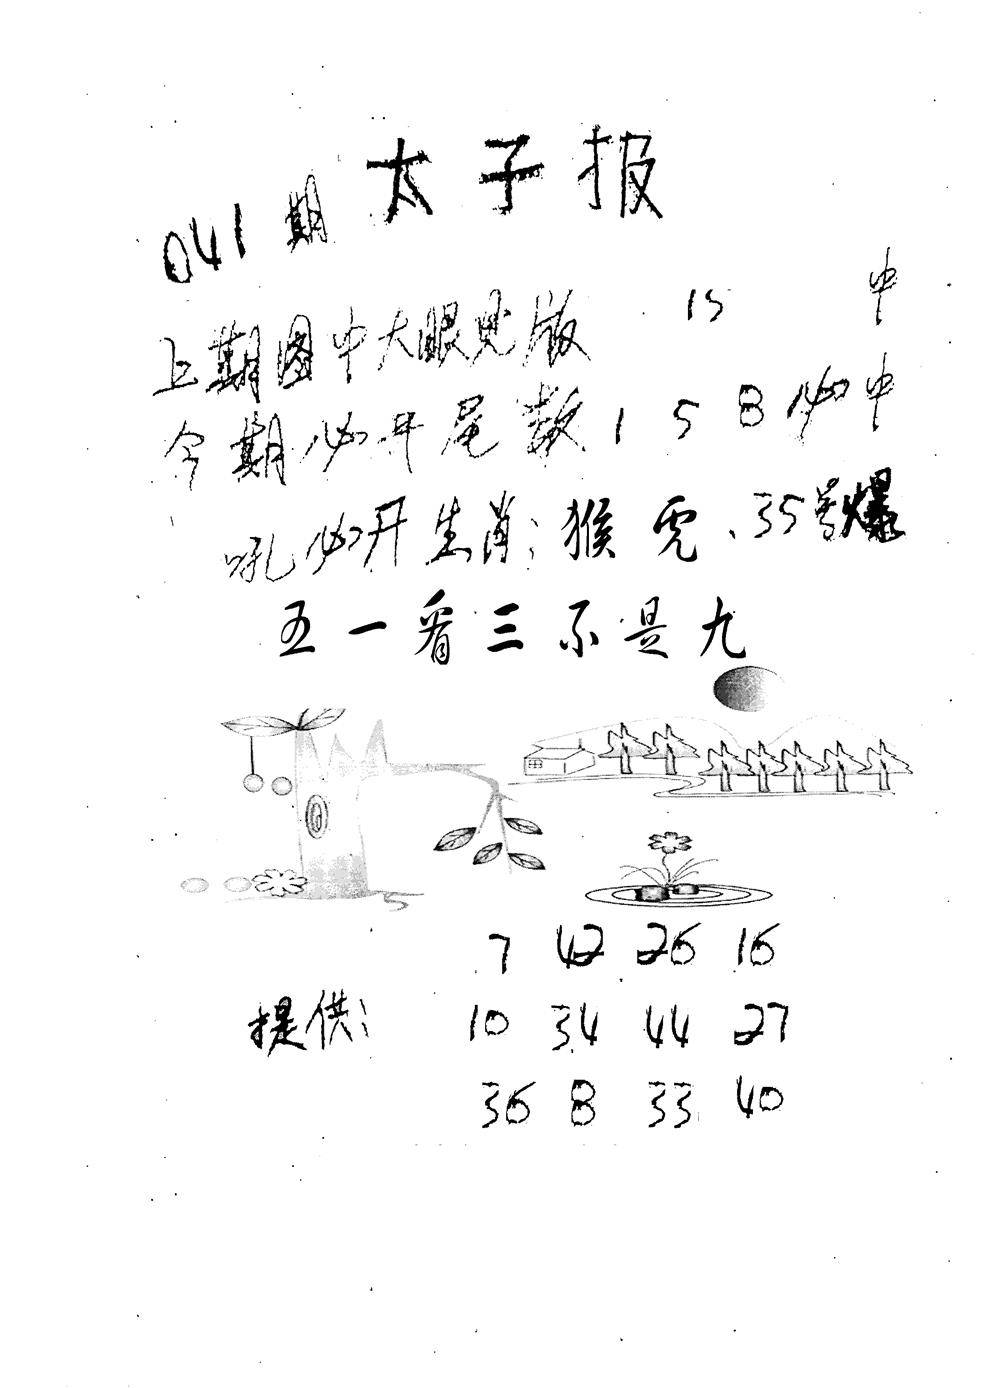 太子报
041期
上期图中大眼见版 15 中
今期必开尾数 1 5 8 必中
吼必开生肖:猴虎、35号爆
五一看三不是九
7 42 26 16
提供: 10 34 44 27
36 8 33 40